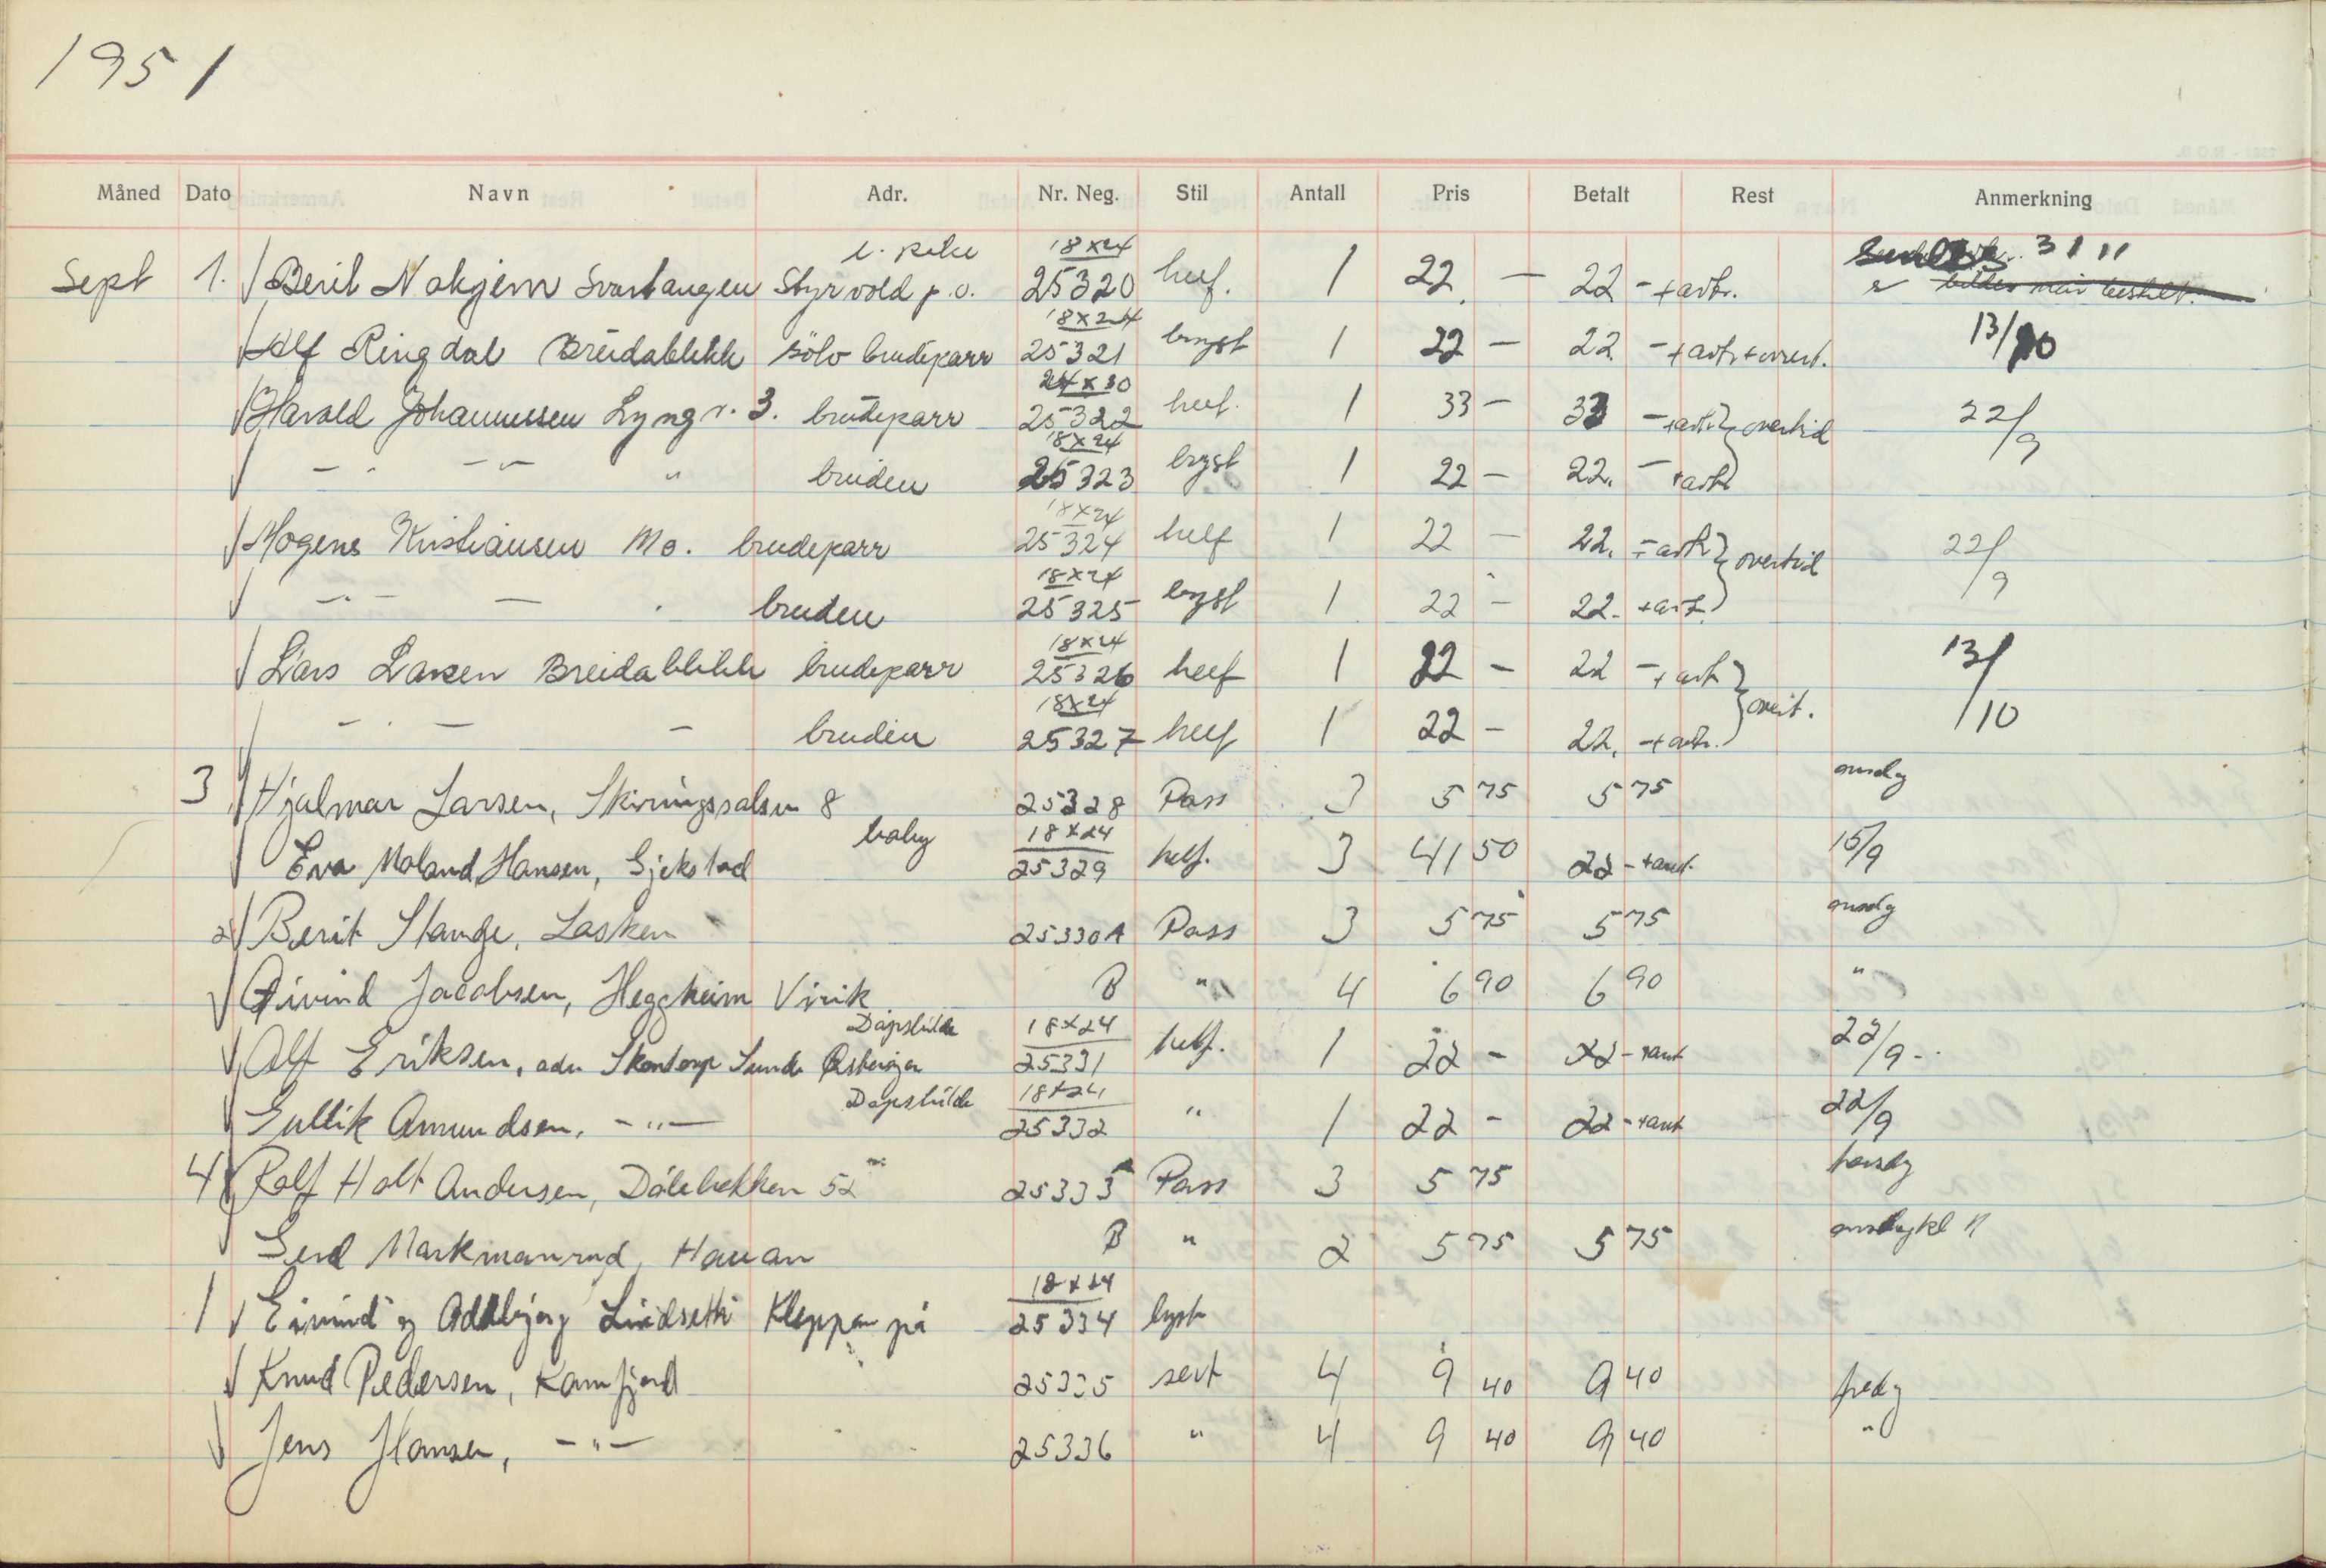 1951
Måned Dato Navn Adr. Nr. Neg. Stil Antall Pris Betalt Rest Anmerkning
Sept 1. Berit Nakjem Svartangen Styrvold p.o. 18x24 25320 helf. 1 22 - 22 - + avtr. 31 11
Alf Ringdal Breidablikk sölv brudeparr 18x24 25321 bryst 1 22 - 22 - + avtr + overt. 13/10
Harald Johannessen Lyng v. 3. brudeparr 24x30 25322 helf. 1 33 - 33 - + avtr } overtid 22/9
- " - - " - " bruden 18x24 25323 bryst 1 22 - 22. - + avtr
Mogens Kristiansen Mo. brudeparr 18x24 25324 helf 1 22 - 22. - + avtr } overtid 22/9
- " - - " bruden 18x24 25325 bryst 1 22 - 22 - + avtr.
Lars Larsen Breidablikk brudeparr 18x24 25326 helf 1 22 - 22 - + avtr } overt. 13/10
- " - - bruden 18x24 25327 helf 1 22 - 22. - + avtr.
3 Hjalmar Larsen, Skiringssalsvn 8 25328 Pass 3 5 75 5 75 onsdg
Eva Moland Hansen, Gjekstad baby 18x24 25329 helf. 3 41 50 22 - + avtr. 15/9
Berit Stange, Lasken 25330A Pass 3 5 75 5 75 onsdg
Øivind Jacobsen, Heggheim Virik B " 4 6 90 6 90 "
Alf Eriksen, adr Skontorp Sunde Østerøyen Dåpsbilde 18x24 25331 helf. 1 22 - 22 - + avtr 22/9 -
Gullik Amundsen, - " - Dåpsbilde 18x24 25332 " 1 22 - 22 - + avtr 22/9
4 Rolf Holt Andersen, Dølebakken 52 25333A Pass 3 5 75 torsdg
Gerd Markmanrud, Hauan B " 2 5 75 5 75 onsdag kl 11
1 Eivind og Oddbjørg Lindseth Kleppan på 18x24 25334 bryst
Knud Pedersen, Kamfjord 25335 sert 4 9 40 9 40 fredg
Jens Hansen, - " - 25336 " 4 9 40 9 40 "